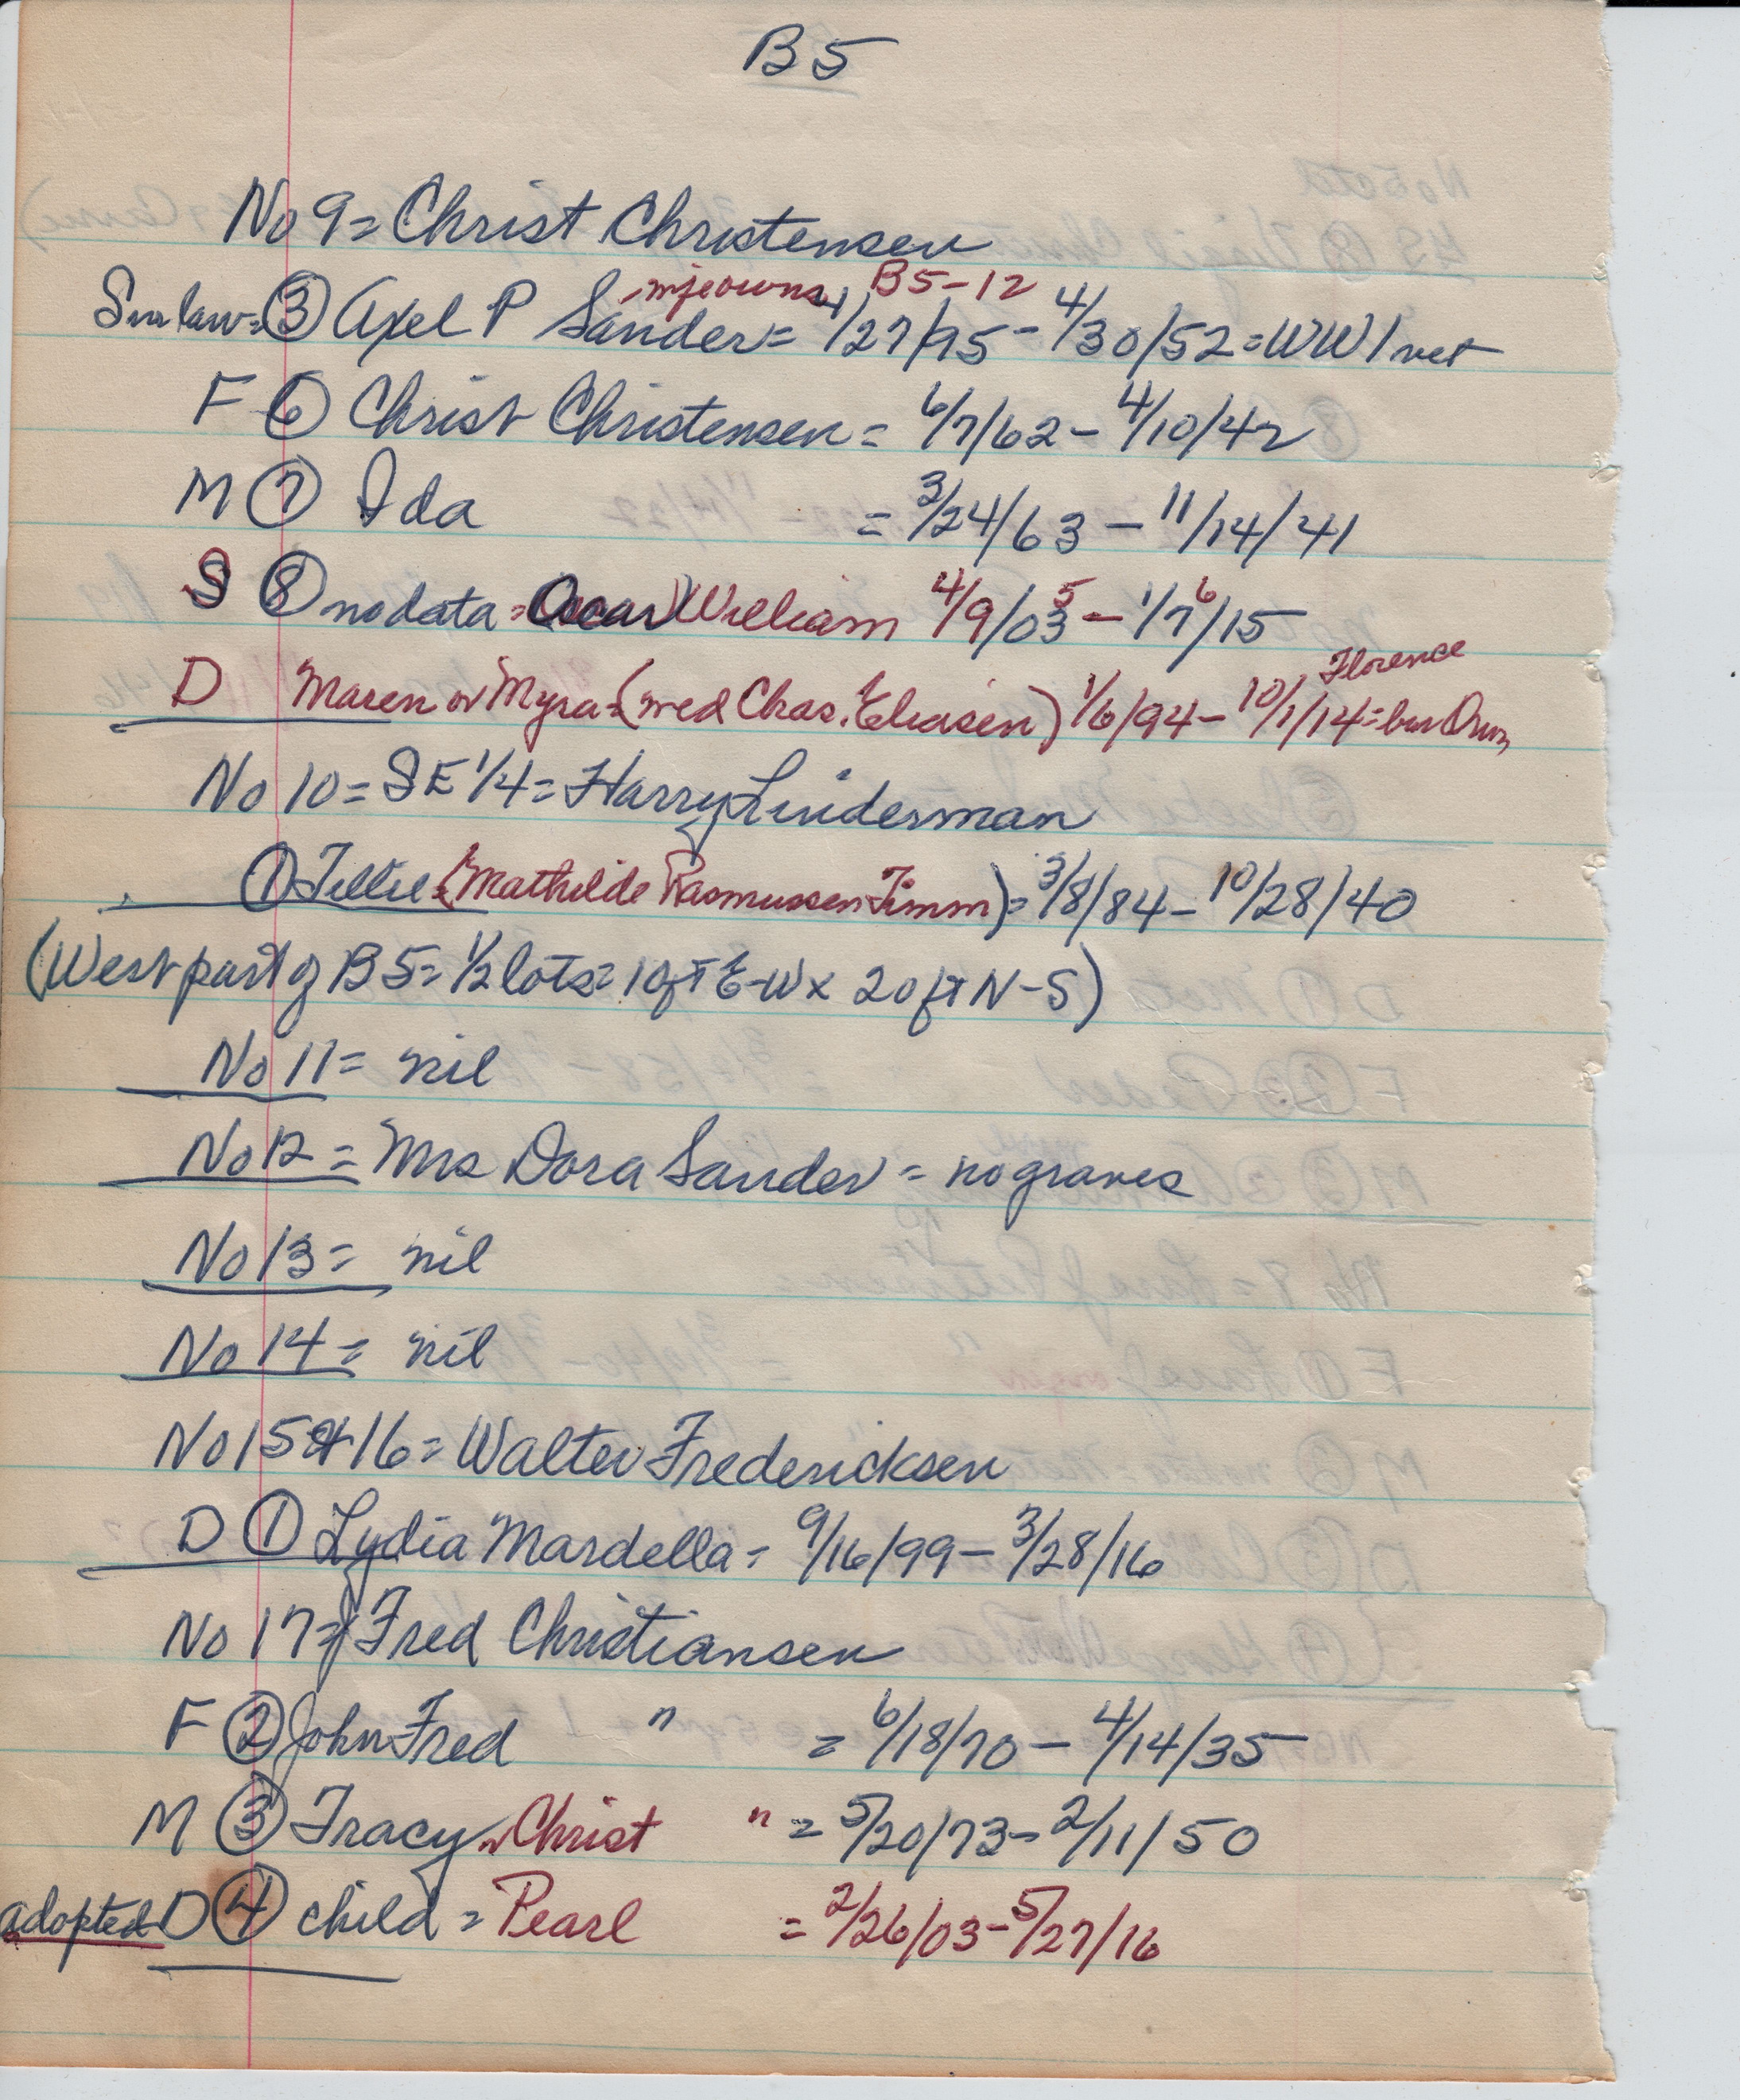 B5
No 9 = Christ Christensen
owns B5-12
Son law = ③ Axel P Sander = 4/27/95 - 4/30/52 = WW1 vet
F ⑥ Christ Christensen = 6/7/62 - 4/10/42
M ⑦ Ida = 3/24/63 - 11/14/41
S ⑧ no data = Oscar William 4/9/03 5 - 1/7 6/15
Florence
D Maren or Myra = (wed Chas. Eliasen) 1/6/94 - 10/1/14 = bur
No 10 = SE 1/4 = Harry Linderman
① Tillie = (Mathilde Rasmussen Timm) = 3/8/84 - 10/28/40
(West part of B5 = 1/2 lots = 10 ft E-W x 20 ft N-S)
No 11 = nil
No 12 = Mrs Dora Sander = no graves
No 13 = nil
No 14 = nil
No 15 + 16 = Walter Fredericksen
D ① Lydia Mardella = 9/16/99 - 3/28/16
No 17 = Fred Christiansen
F ② John Fred " = 6/18/70 - 4/14/35
M ③ Tracy Christ " = 5/20/73 - 2/11/50
adopted D ④ child = Pearl = 2/26/03 - 5/27/16